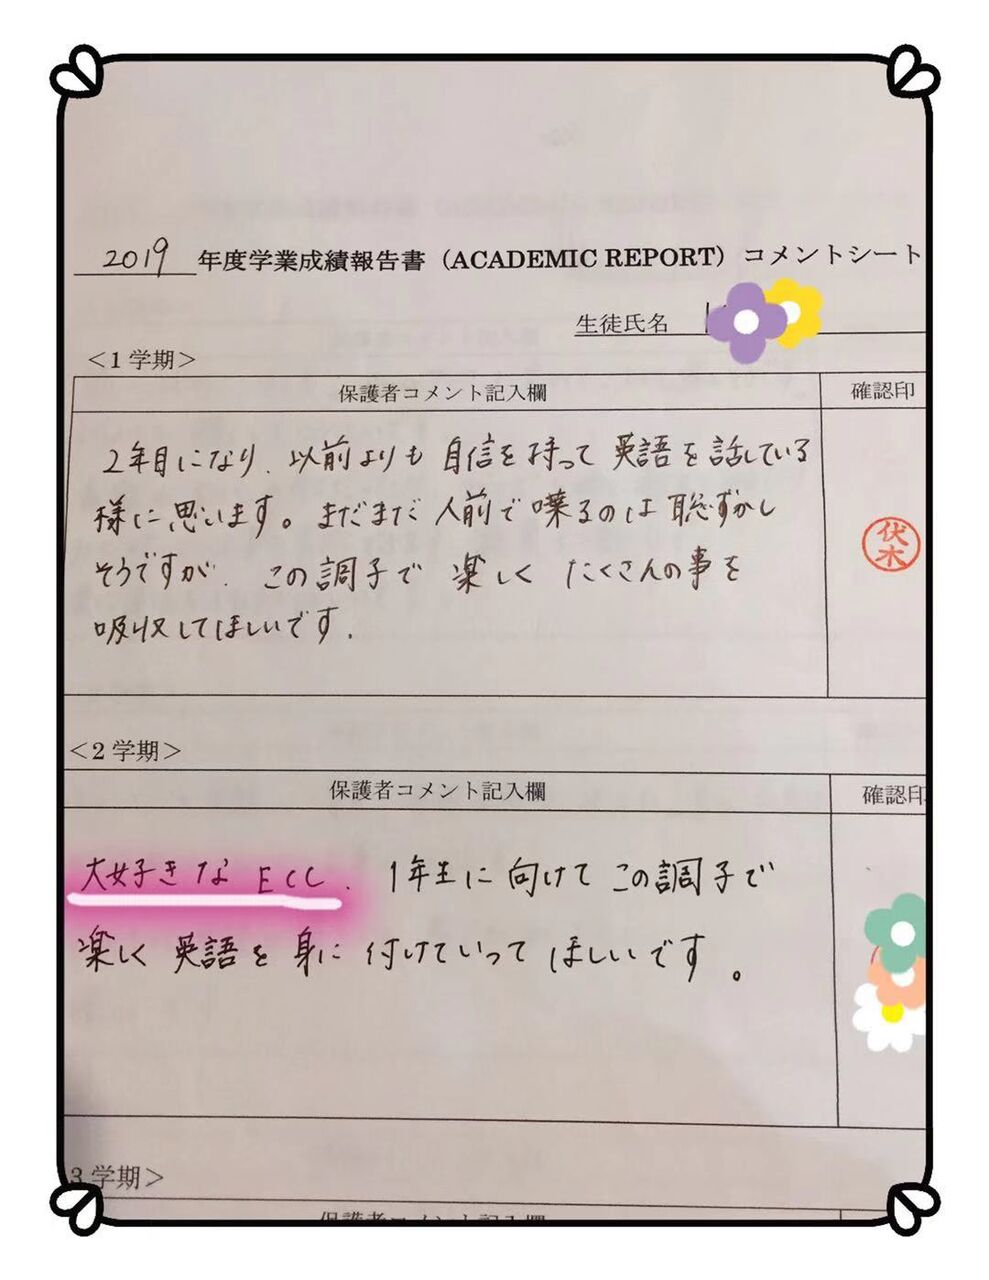 2019 年度学業成績報告書（ACADEMIC REPORT）コメントシート
生徒氏名
＜1学期＞
保護者コメント記入欄
確認印
2年目になり、以前よりも自信を持って英語を話している
様に思います。まだまだ人前で喋るのは恥ずかし
そうですが、この調子で楽しくたくさんの事を
吸収してほしいです.
伏木
＜2学期＞
保護者コメント記入欄
確認印
大好きなECC、1年生に向けてこの調子で
楽しく英語を身に付けていってほしいです。
3学期＞
保護者コメント記入欄